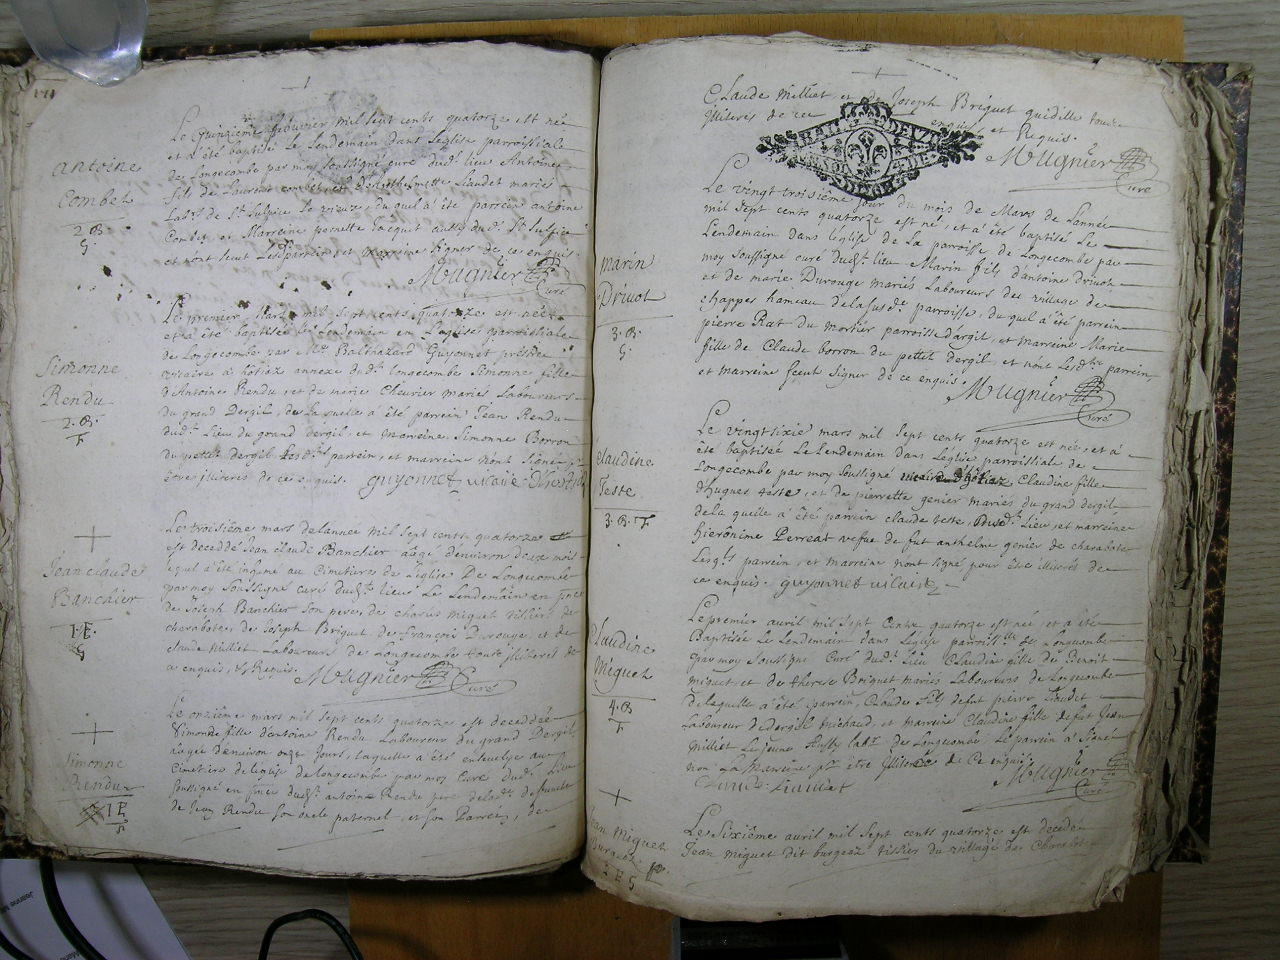 antoine
Combet
2.B.
G.
Le quinzieme febvrier mil sept cents quatorze est né
et a été baptisé le Lendemain dans Leglise parroissiale
de Longecombe par moy soussigné curé dud. lieu Antoine
fils de Laurent combet et de Claudet mariés
Lab.rs de St Sulpice le vieux, duquel a été parrein antoine
Combet et Marreine pernette Jacquet aussy dud. St Sulpice
et nont sceut Lesd parrein et marreine signer de ce enquis.
Mugnier
Curé
Simonne
Rendu
2.B.
F
Le premier Mars mil sept cents quatorze est née
et a été baptisée le Lendemain en Leglise parroissiale
de Longecombe par Mre Balthazard Guyonnet prestre
vicaire a hotiaz annexe dud. longecombe Simonne fille
d'Antoine Rendu et de marie Chevrier mariés Laboureurs
du grand Dergil, de Laquelle a été parrein Jean Rendu
dud. Lieu du grand dergil, et marreine Simonne Borron
du pettit dergil Lesd. parrein, et marreine nont signé pr
être jlliteres de ce enquis. guyonnet vicaire
Jean claude
Banchier
1.E.
G
Le troisième mars delannée mil sept cents quatorze
est deceddé Jean Claude Banchier aagé denviron deux mois
lequel a été inhumé au Cimetiere de Leglise De Longecombe
par moy soussigné curé dud. lieu Le Lendemain en pnce
de Joseph Banchier son pere, de charles miquet tissier de
charabote, de Joseph Briguet de françois Durouge, et de
Claude Milliet Laboureurs de Longecombe touts jlliteres de
ce enquis, et Requis. Mugnier
Curé
Simonne
Rendu
1E
Le onzième mars mil sept cents quatorze est deceddée
Simonde fille dantoine Rendu Laboureur du grand Dergil
aagée denviron onze jours, laquelle a été ensevelye au
Cimetiere deleglise de longecombe par moy Curé dud. Lieu
soussigné en pnce dud. antoine Rendu pere delad. defuncte
de Jean Rendu son oncle paternel, et son Parrein, de
Claude Milliet, et de Joseph Briguet quidille touts
jlliteres de ce enquis et Requis.
Mugnier
Curé
marin
Drivot
3.B.
G.
Le vingt troisième jour du mois de Mars de Lannée
mil sept cents quatorze est né, et a été baptisé Le
Lendemain dans leglise de La parroisse de Longecombe par
moy soussigné curé dud. lieu Marin fils d'antoine Drivot
et de marie Durouge mariés Laboureurs du village de
chappes hameau delasusd. parroisse, duquel a été parrein
pierre Rat du mortier parroisse dargit, et marreine Marie
fille de Claude borron du pettit dergil, et nont Lesd. parrein,
et marreine sceut signer de ce enquis. Mugnier
Curé
Claudine
Teste
3.B.F
Le vingt sixie mars mil sept cents quatorze est née, et a
été baptisée le Lendemain dans Leglise parroissiale de
Longecombe par moy soussigné vicaire d'hotiaz Claudine fille
d'hugues teste, et de pierrette genier mariés du grand dergil
dela quelle a été parrein claude teste dud. Lieu, et marreine
hierônime Perreat vefve de fut anthelme genier de charabote
Lesq.ls parrein, et marreine nont signé pour être jlliteres de
ce enquis. guyonnet vicaire
Claudine
Miguet
4.B
F
Le premier avril mil sept Cents quatorze est née, et a été
Baptisée Le Lendemain dans Leglise parroiss.lle de Longecombe
par moy soussigné Curé dud. Lieu Claudine fille de Benoit
miguet, et de therese Briguet mariés Laboureurs de Longecombe
delaquelle a été parrein, Claude fils defut pierre
Laboureur de dergil michaud, et marreine Claudine fille defut Jean
Milliet Le jeune Aussy lab.r de Longecombe. Le parrein a signé
non La Marreine pr être jllitere de ce enquis Mugnier
Curé
Jean Miguet
Burgeaz
2 E G
Le Sixième avril mil sept cents quatorze est decedé
Jean miguet dit burgeaz tissier du village de Charabot